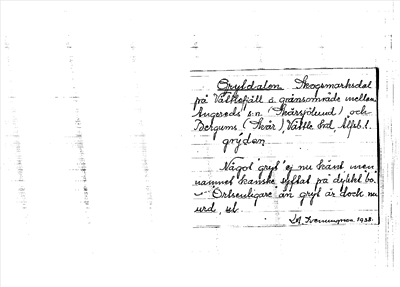 Gryldalen Skogsmarksdal
på Vättlefjäll å gränsområde mellan
Angereds s:n (Skärsjölund) och
Bergums (Skär), Vättle hd, Älfsb. l.
grýden
Något gryt ej nu känt men
namnet kanske syftat på dylikt bo.
Ortsenligare än gryt är dock nu
urd, ut
1938.